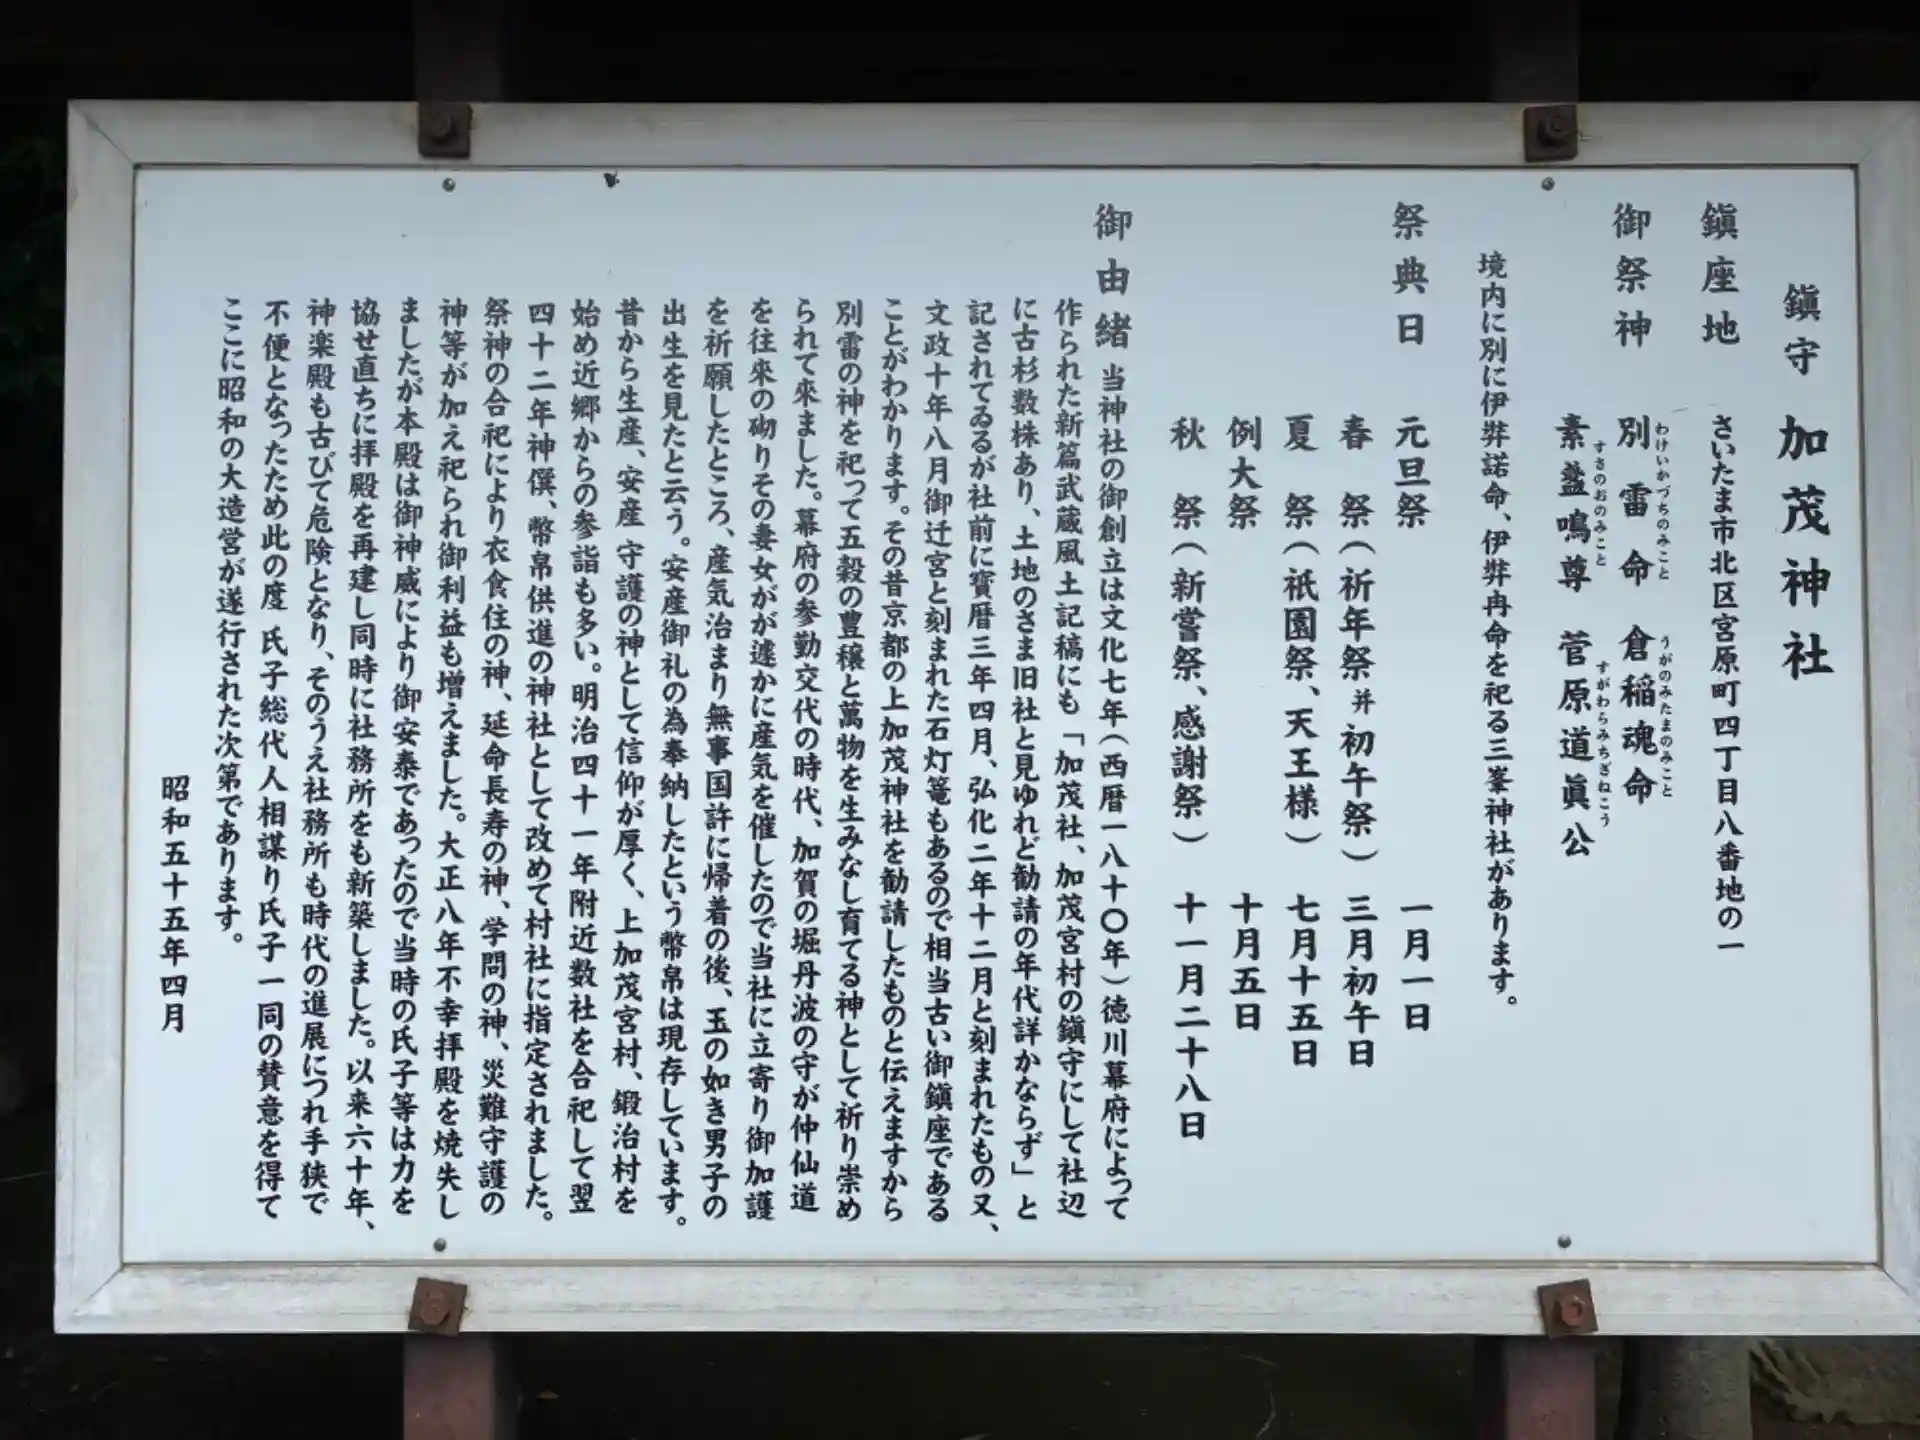 鎭守 加茂神社
鎭座地 さいたま市北区宮原町四丁目八番地の一
御祭神 別雷命 倉稲魂命
わけいかづちのみこと うがのみたまのみこと
素盞鳴尊 菅原道眞公
すさのおのみこと すがわらみちざねこう
境内に別に伊弉諾命、伊弉冉命を祀る三峯神社があります。
祭典日 元旦祭 一月一日
春 祭（祈年祭并初午祭） 三月初午日
夏 祭（祇園祭、天王様） 七月十五日
例大祭 十月五日
秋 祭（新嘗祭、感謝祭） 十一月二十八日
御由緒 当神社の御創立は文化七年（西暦一八十〇年）徳川幕府によって
作られた新篇武蔵風土記稿にも「加茂社、加茂宮村の鎭守にして社辺
に古杉数株あり、土地のさま旧社と見ゆれど勧請の年代詳かならず」と
記されてゐるが社前に寳暦三年四月、弘化二年十二月と刻まれたもの又、
文政十年八月御迁宮と刻まれた石灯篭もあるので相当古い御鎭座である
ことがわかります。その昔京都の上加茂神社を勧請したものと伝えますから
別雷の神を祀って五穀の豊穣と萬物を生みなし育てる神として祈り崇め
られて來ました。幕府の参勤交代の時代、加賀の堀丹波の守が仲仙道
を往來の砌りその妻女がが遽かに産気を催したので当社に立寄り御加護
を祈願したところ、産気治まり無事国許に帰着の後、玉の如き男子の
出生を見たと云う。安産御礼の為奉納したという幣帛は現存しています。
昔から生産、安産 守護の神として信仰が厚く、上加茂宮村、鍛治村を
始め近郷からの参詣も多い。明治四十一年附近数社を合祀して翌
四十二年神饌、幣帛供進の神社として改めて村社に指定されました。
祭神の合祀により衣食住の神、延命長寿の神、学問の神、災難守護の
神等が加え祀られ御利益も増えました。大正八年不幸拝殿を焼失し
ましたが本殿は御神威により御安泰であったので当時の氏子等は力を
協せ直ちに拝殿を再建し同時に社務所をも新築しました。以来六十年、
神楽殿も古びて危険となり、そのうえ社務所も時代の進展につれ手狭で
不便となったため此の度 氏子総代人相謀り氏子一同の賛意を得て
ここに昭和の大造営が遂行された次第であります。
昭和五十五年四月